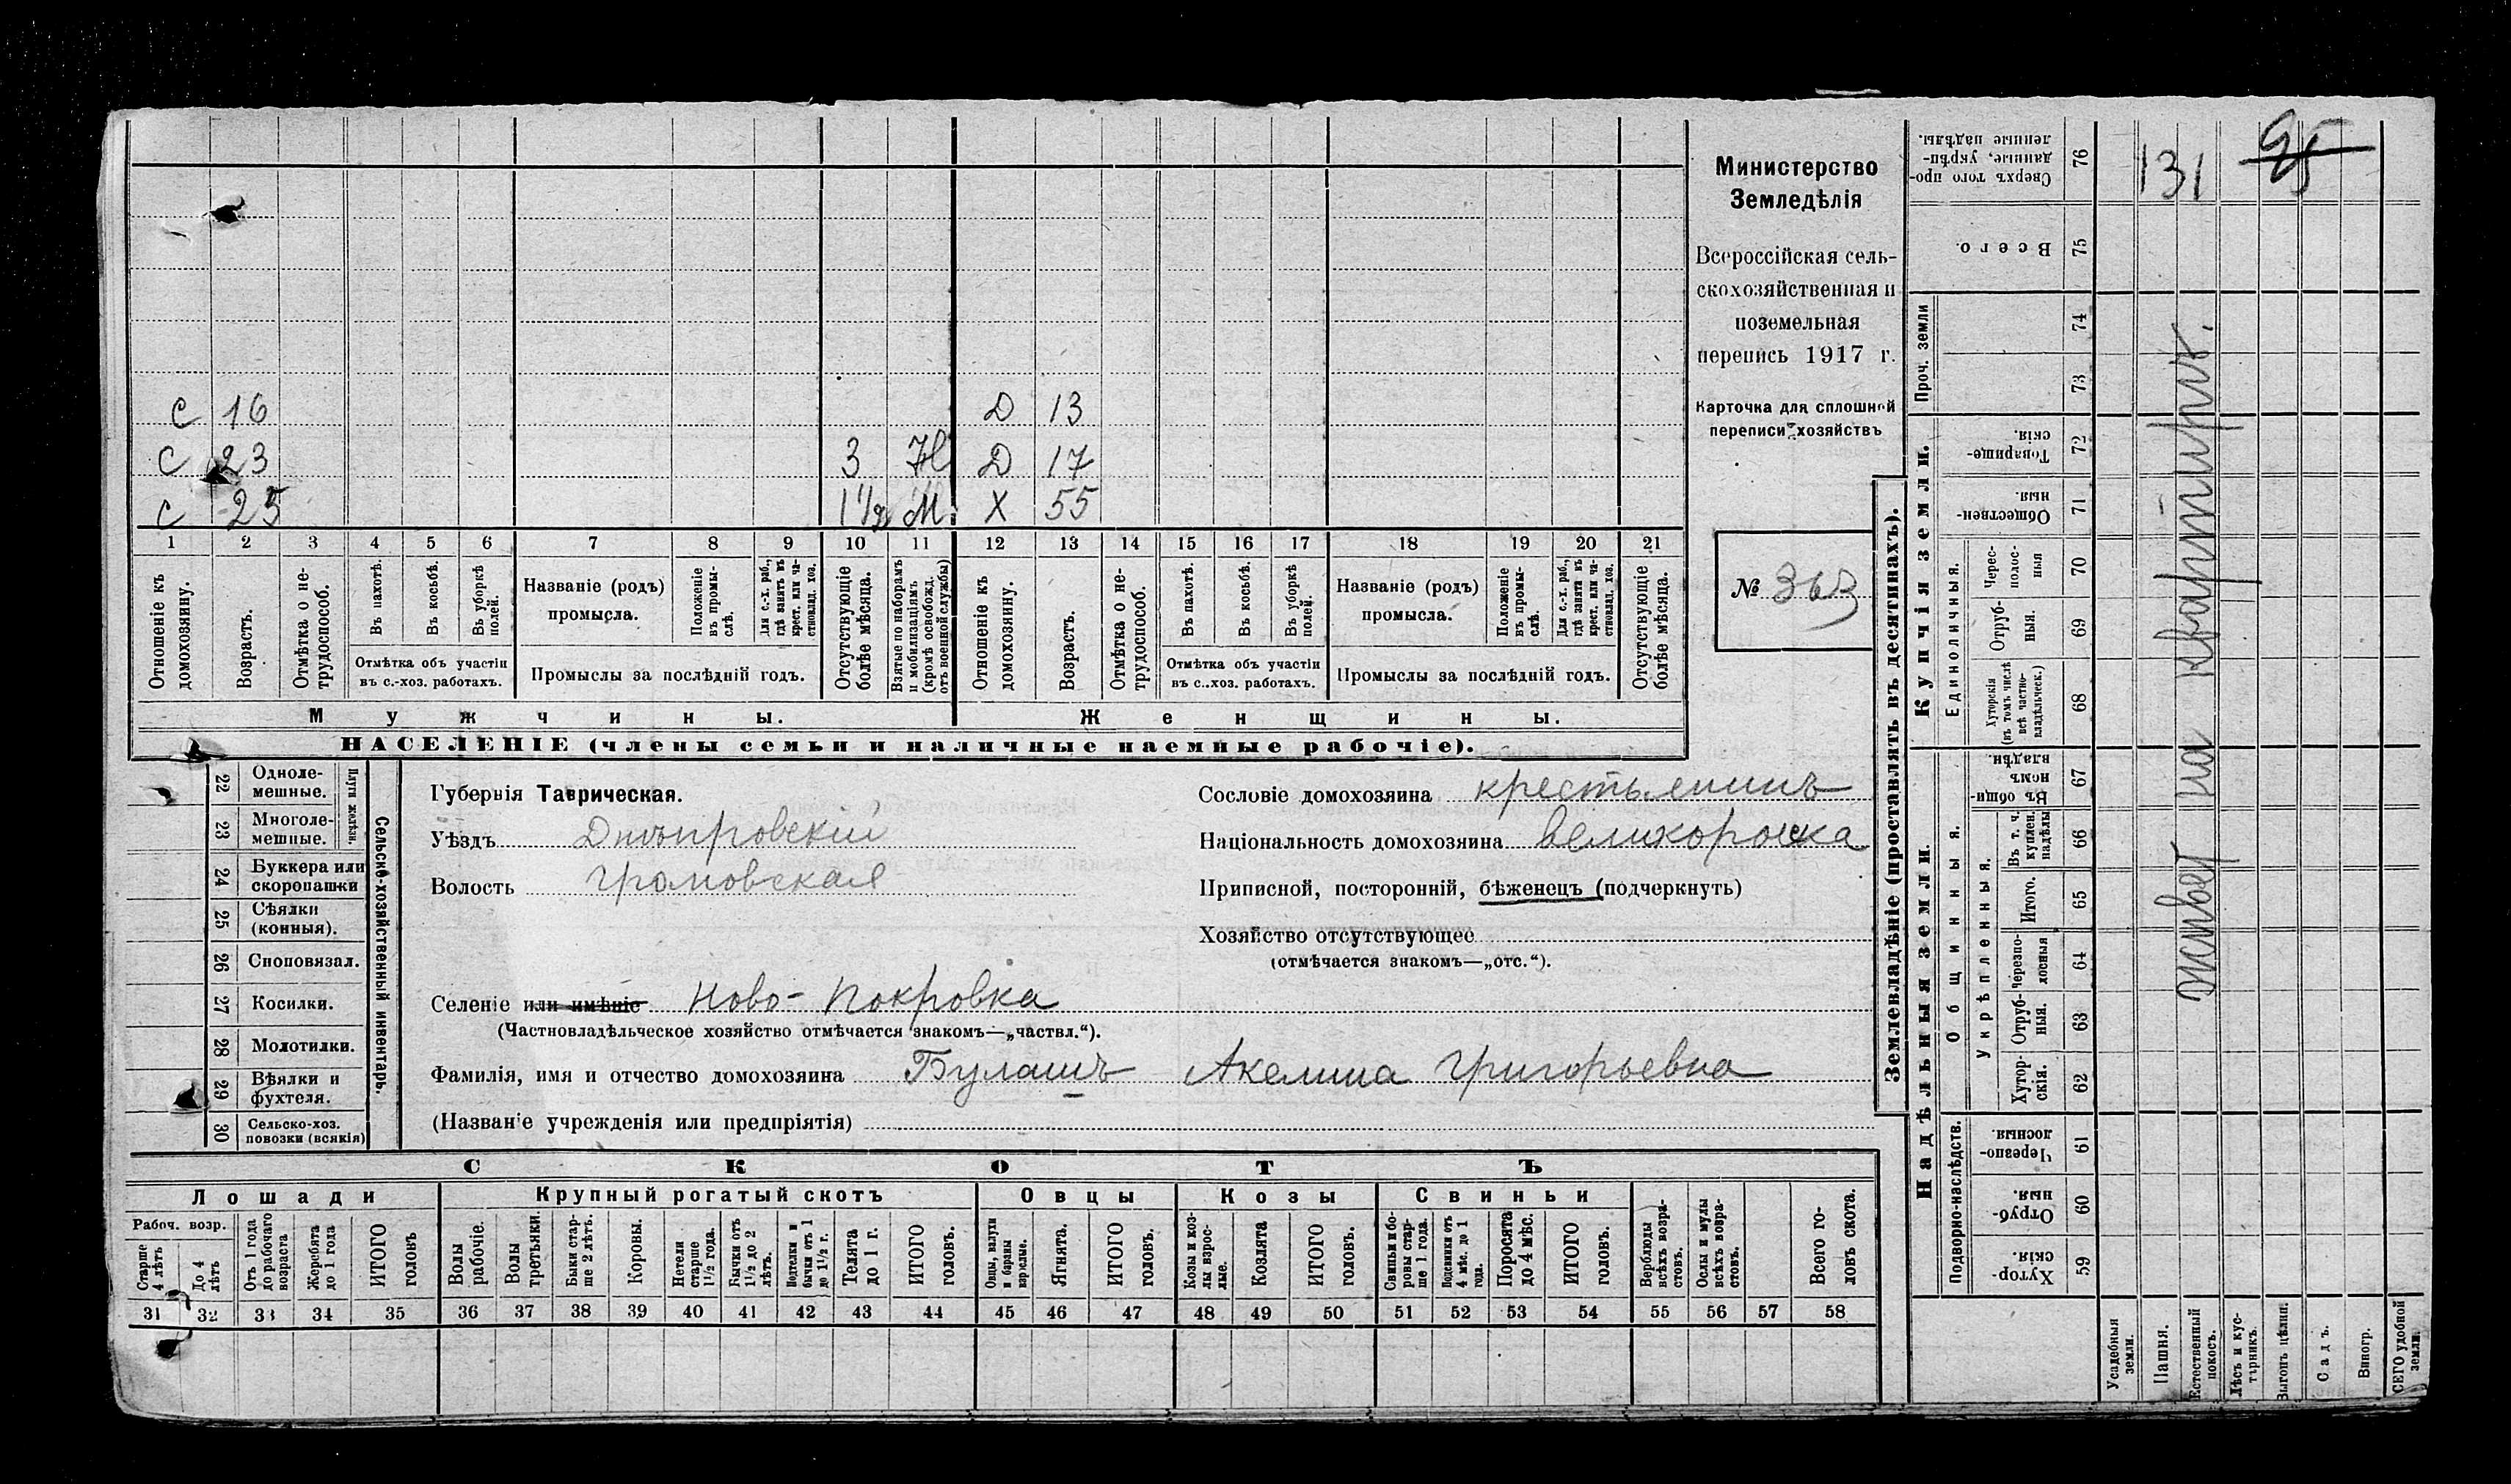 С 16 Д 13
С 23 3 Н Д 17
С 25 1 1/2 М Х 55
1 2 3 4 5 6 7 8 9 10 11 12 13 14 15 16 17 18 19 20 21
Отношеніе къ домохозяину.
Возрастъ.
Отмѣтка о не-
трудоспособ.
Въ пахотѣ.
Въ косьбѣ.
Въ уборкѣ полей.
Отмѣтка объ участіи
въ с.-хоз. работахъ.
Названіе (родъ)
промысла.
Положеніе въ промы-
слѣ.
Для с.-х. раб.,
гдѣ занятъ въ
крест. или ча-
стновлад. хоз.
Промыслы за послѣдній годъ.
Отсутствующіе
болѣе мѣсяца.
Взятые по наборамъ
и мобилизаціямъ
(кромѣ освобожд.
отъ военной службы)
Отношеніе къ домохозяину.
Возрастъ.
Отмѣтка о не-
трудоспособ.
Въ пахотѣ.
Въ косьбѣ.
Въ уборкѣ полей.
Отмѣтка объ участіи
въ с..хоз. работахъ.
Названіе (родъ)
промысла.
Положеніе въ промы-
слѣ.
Для с.-х. раб.,
гдѣ занятъ въ
крест. или ча-
стновлад. хоз.
Промыслы за послѣдній годъ.
Отсутствующіе
болѣе мѣсяца.
Мужчины.
Женщины.
НАСЕЛЕНІЕ (члены семьи и наличные наемные рабочіе).
Министерство
Земледѣлія
Всероссійская сель-
скохозяйственная и
поземельная
перепись 1917 г.
Карточка для сплошной
переписи хозяйствъ
№ 363
22 Одноле-
мешные.
23 Многоле-
мешные.
Плуги желѣзн.
24 Буккера или
скоропашки
25 Сѣялки
(конныя).
26 Сноповязал.
27 Косилки.
28 Молотилки.
29 Вѣялки и
фухтеля.
30 Сельско-хоз.
повозки (всякія)
Сельско-хозяйственный инвентарь.
Губернія Таврическая.
Уѣздъ Днѣпровскій
Волость Громовская
Селеніе или имѣніе Ново-Покровка
(Частновладѣльческое хозяйство отмѣчается знакомъ—„частвл.“).
Фамилія, имя и отчество домохозяина Булашъ Акелина Григорьевна
(Названіе учрежденія или предпріятія)
Сословіе домохозяина крестьянинъ
Національность домохозяина великоросска
Приписной, посторонній, бѣженецъ (подчеркнуть)
Хозяйство отсутствующее
(отмѣчается знакомъ—„отс.“).
СКОТЪ
Лошади
Крупный рогатый скотъ
Овцы
Козы
Свиньи
Рабоч. возр.
Старше
4 лѣтъ
До 4
лѣтъ
Отъ 1 года
до рабочаго
возраста
Жеребята
до 1 года
ИТОГО
головъ
Волы
рабочіе.
Волы
третьяки.
Быки стар-
ше 2 лѣтъ.
Коровы.
Нетели
старше
1 1/2 года.
Бычки отъ
1 1/2 до 2
лѣтъ.
Подтелки и
бычки отъ 1
до 1 1/2 г.
Телята
до 1 г.
ИТОГО
головъ.
Овцы, валухи
и бараны
взрослые.
Ягнята.
ИТОГО
головъ.
Козы и коз-
лы взрос-
лые.
Козлята
ИТОГО
головъ.
Свиньи и бо-
ровы стар-
ше 1 года.
Подсвинки отъ
4 мѣс. до 1
года.
Поросята
до 4 мѣс.
ИТОГО
головъ.
Верблюды
всѣхъ возра-
стовъ.
Ослы и мулы
всѣхъ возра-
стовъ.
Всего го-
ловъ скота.
31 32 33 34 35 36 37 38 39 40 41 42 43 44 45 46 47 48 49 50 51 52 53 54 55 56 57 58
Землевладѣніе (проставлять въ десятинахъ).
Надѣльныя земли.
Купчія земли.
Проч. земли
Подворно-наслѣдств.
Общинныя.
Укрѣпленныя.
Единоличныя.
Сверхъ того про-
данные, укрѣп-
ленные надѣлы. 76
Всего. 75
74
73
Товарище-
скія. 72
Обществен-
ныя. 71
Черес-
полос-
ныя 70
Отруб-
ныя. 69
Хуторскія
(въ томъ числѣ
всѣ частно-
владѣльческ.) 68
Въ общин-
номъ
владѣн. 67
Въ т. ч.
куплен.
надѣлы 66
Итого. 65
Черезпо-
лосныя 64
Отруб-
ныя. 63
Хутор-
скія. 62
Черезпо-
лосныя. 61
Отруб-
ныя. 60
Хутор-
скія. 59
Усадебныя
земли.
Пашня.
Естественный
покосъ.
Лѣсъ и кус-
тарникъ.
Выгонъ цѣлин.
Садъ.
Виногр.
ВСЕГО удобной
земли.
131
95
живет на квартирѣ.